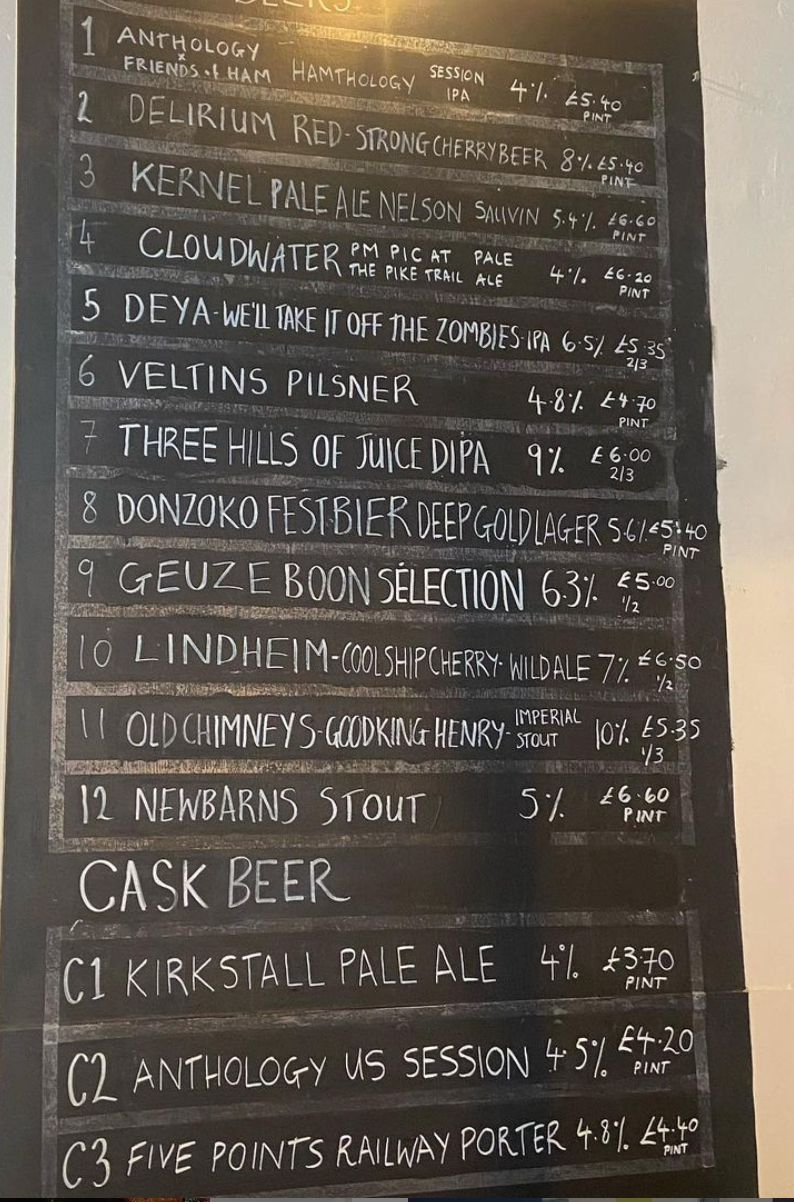 BEERS
1 ANTHOLOGY x FRIENDS of HAM HAMTHOLOGY SESSION IPA 4% £5.40 PINT
2 DELIRIUM RED - STRONG CHERRY BEER 8% £5.40 PINT
3 KERNEL PALE ALE NELSON SAUVIN 5.4% £6.60 PINT
4 CLOUDWATER PM PIC AT THE PIKE TRAIL PALE ALE 4% £6.20 PINT
5 DEYA - WE'LL TAKE IT OFF THE ZOMBIES - IPA 6.5% £5.35 2/3
6 VELTINS PILSNER 4.8% £4.70 PINT
7 THREE HILLS OF JUICE DIPA 9% £6.00 2/3
8 DONZOKO FESTBIER DEEP GOLD LAGER 5.6% £5.40 PINT
9 GEUZE BOON SÉLECTION 6.3% £5.00 1/2
10 LINDHEIM - COOLSHIP CHERRY - WILD ALE 7% £6.50 1/2
11 OLD CHIMNEYS - GOOD KING HENRY - IMPERIAL STOUT 10% £5.35 1/3
12 NEWBARNS STOUT 5% £6.60 PINT
CASK BEER
C1 KIRKSTALL PALE ALE 4% £3.70 PINT
C2 ANTHOLOGY US SESSION 4.5% £4.20 PINT
C3 FIVE POINTS RAILWAY PORTER 4.8% £4.40 PINT